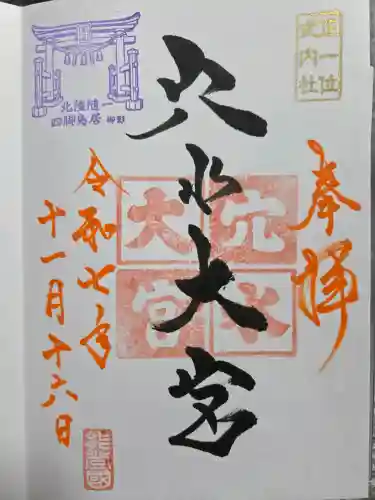 正一位
式内社
奉拝
穴水大宮
穴水
大宮
北陸随一
四脚鳥居
令和七年
十一月十六日
能登國